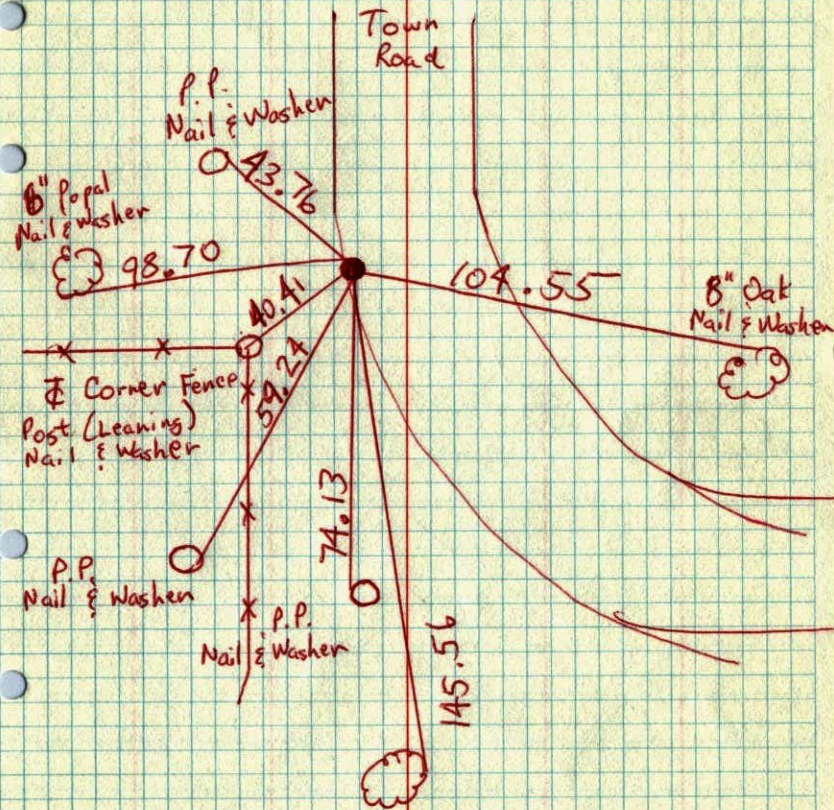 Town
Road
P.P.
Nail & Washer
43.76
Popal
Nail & washer
98.70
104.55
8" Oak
Nail & Washer
40.41
59.24
Corner Fence
Post (Leaning)
Nail & Washer
74.13
P.P.
Nail & Washer
P.P.
Nail & Washer
145.56